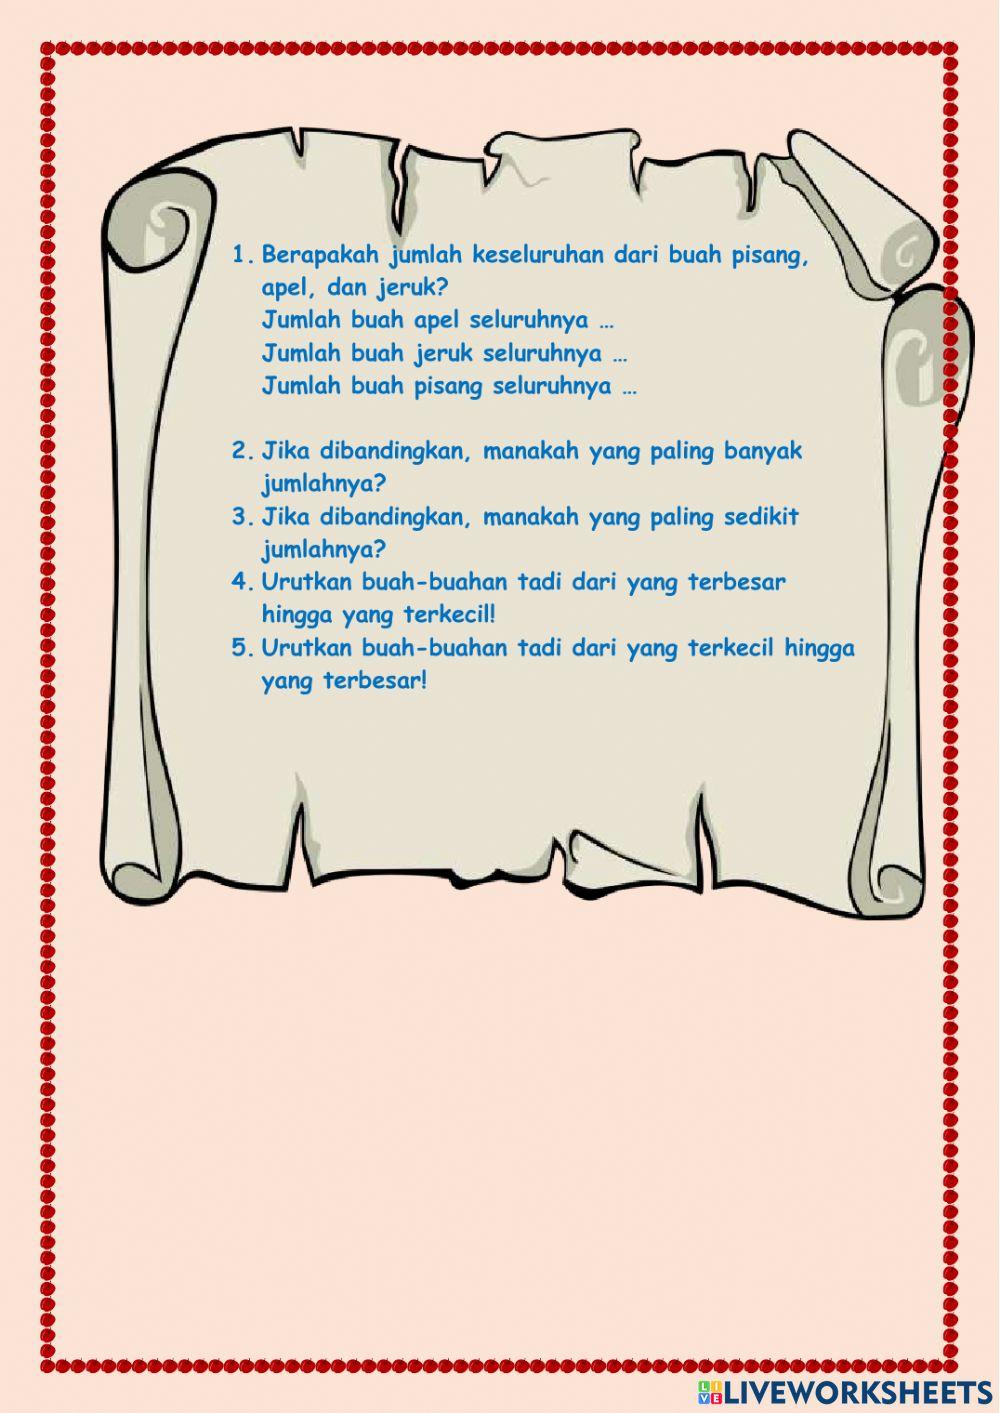 1. Berapakah jumlah keseluruhan dari buah pisang,
apel, dan jeruk?
Jumlah buah apel seluruhnya ...
Jumlah buah jeruk seluruhnya ...
Jumlah buah pisang seluruhnya ...
2. Jika dibandingkan, manakah yang paling banyak
jumlahnya?
3. Jika dibandingkan, manakah yang paling sedikit
jumlahnya?
4. Urutkan buah-buahan tadi dari yang terbesar
hingga yang terkecil!
5. Urutkan buah-buahan tadi dari yang terkecil hingga
yang terbesar!
LIVE LIVEWORKSHEETS